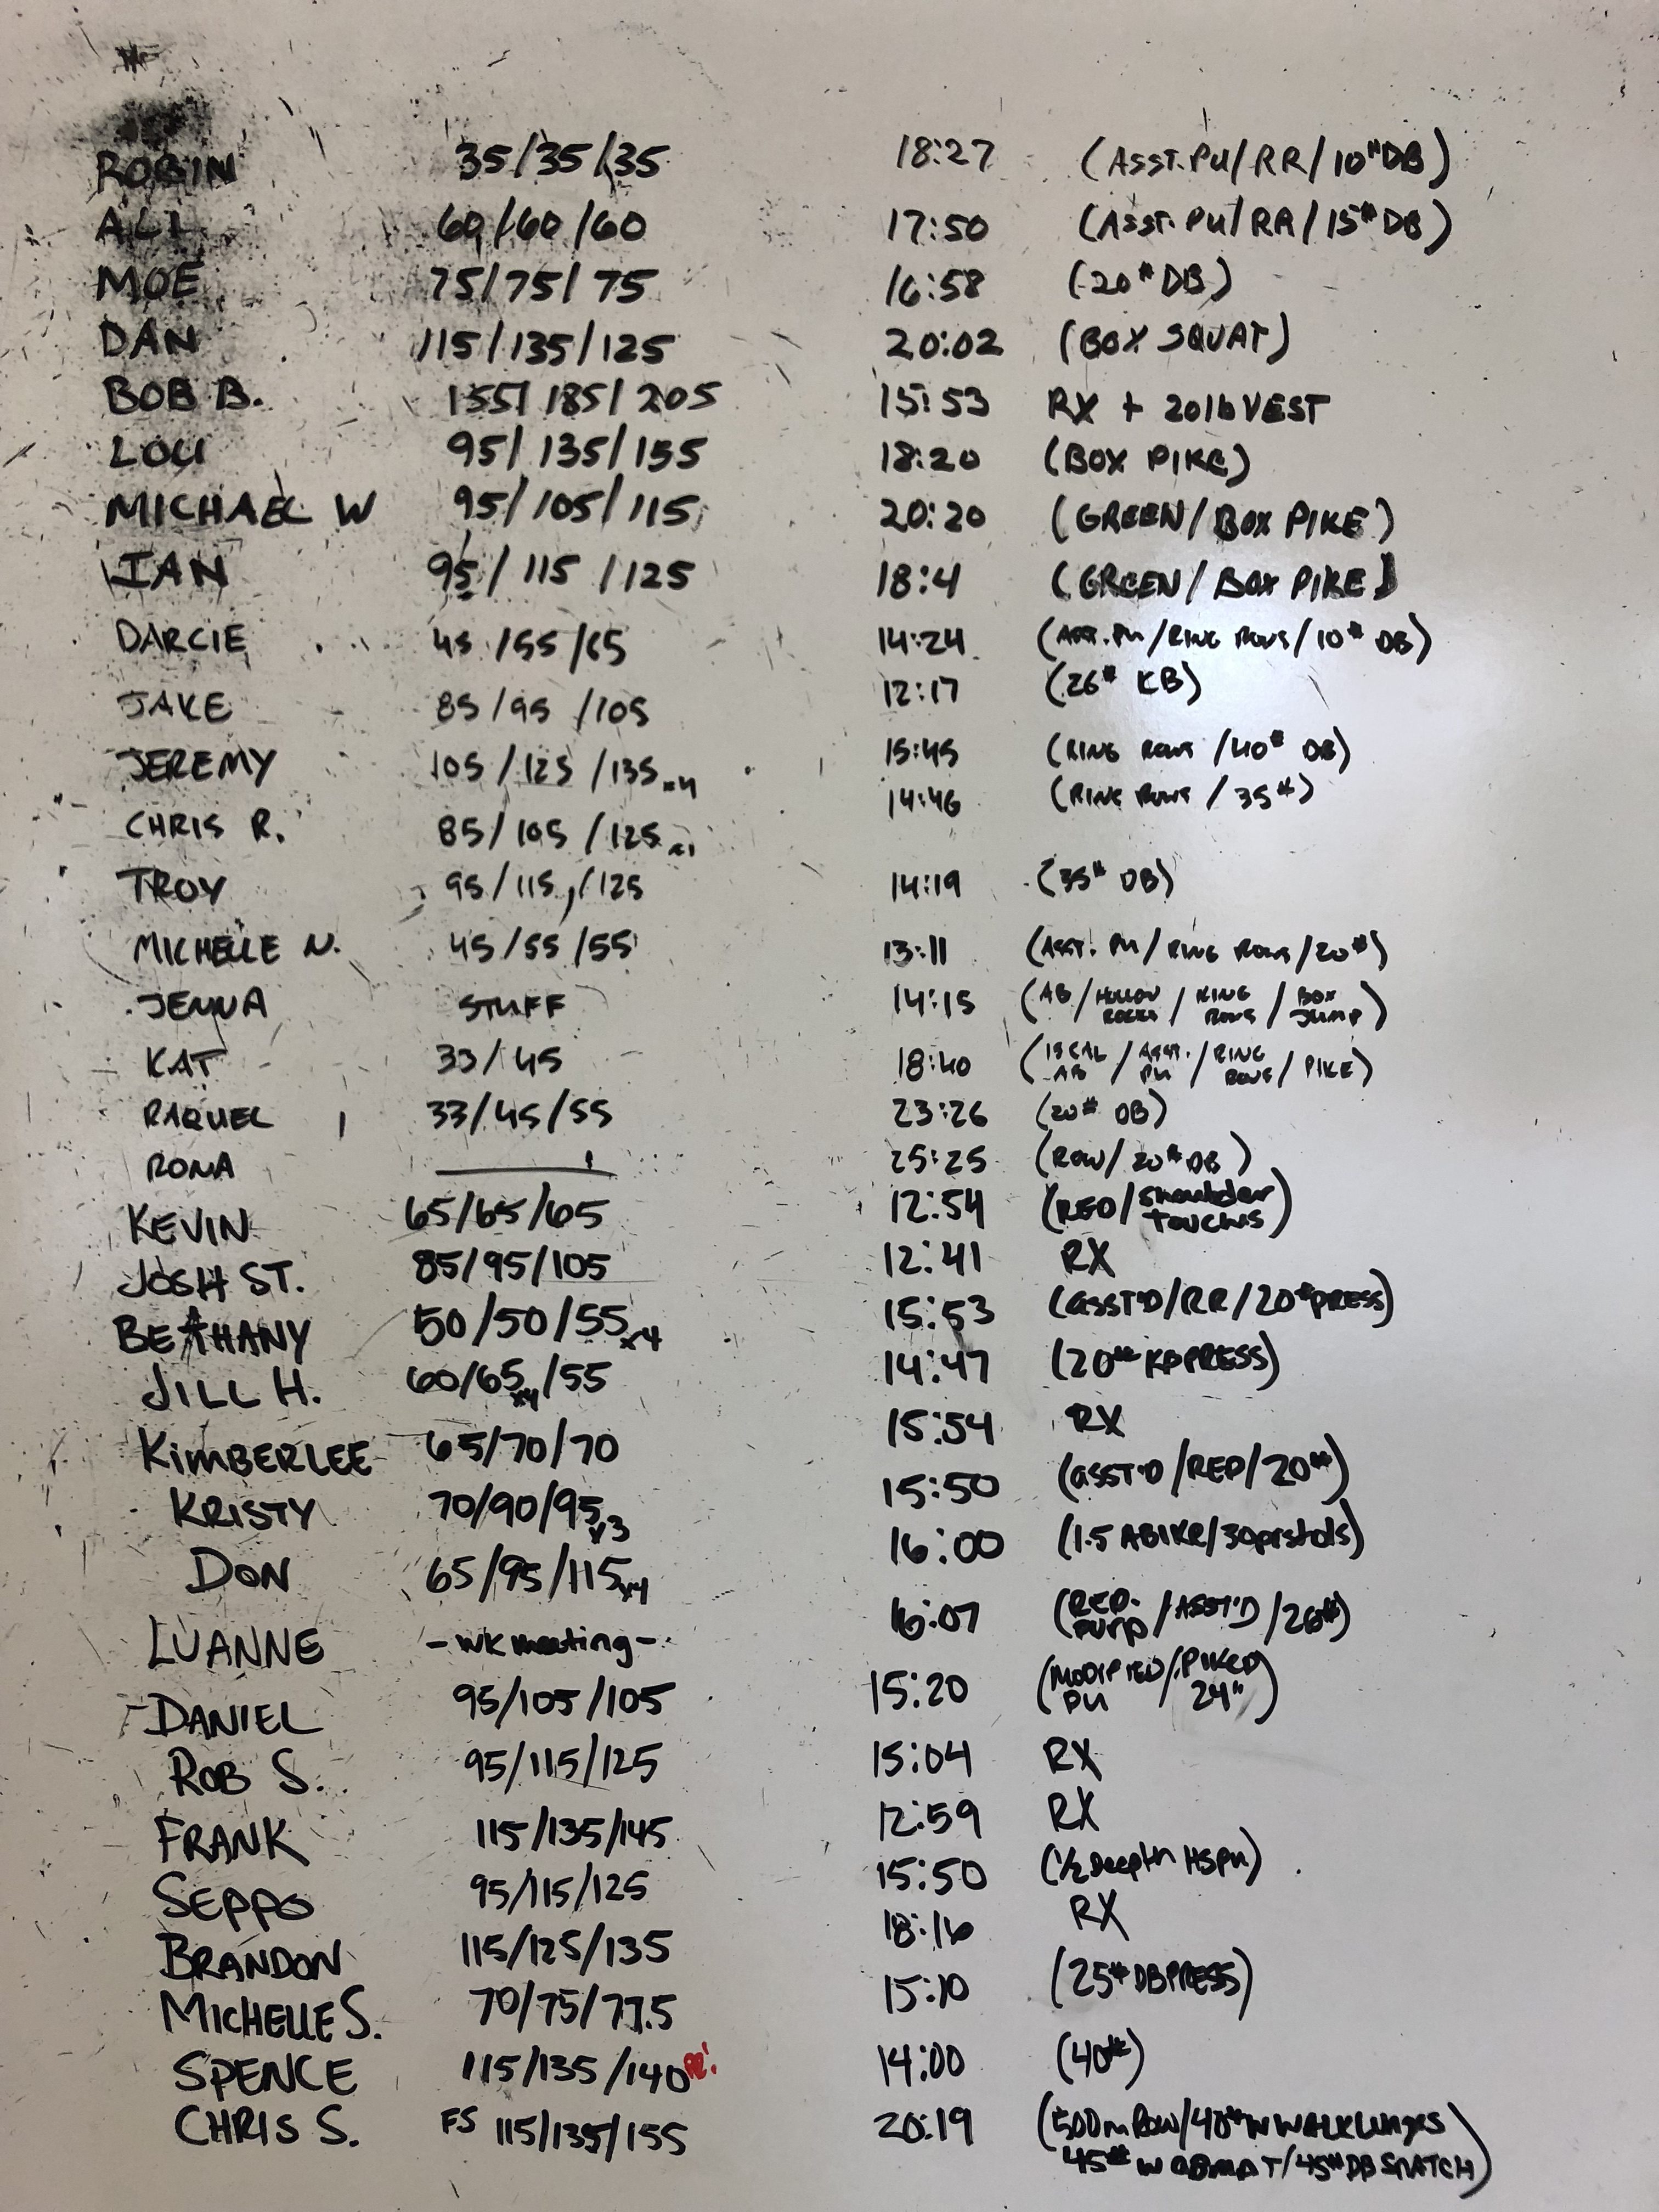 ROBIN 35/35/35 18:27 (ASST.PU/RR/10#DB)
ALI 60/60/60 17:50 (ASST.PU/RR/15#DB)
MOE 75/75/75 16:58 (20#DB)
DAN 115/135/125 20:02 (BOX SQUAT)
BOB B. 155/185/205 15:53 RX + 20lb VEST
LOU 95/135/155 18:20 (BOX PIKE)
MICHAEL W 95/105/115 20:20 (GREEN/BOX PIKE)
IAN 95/115/125 18:4 (GREEN/BOX PIKE)
DARCIE 45/55/65 14:24 (ASST.PU/RING ROWS/10# DB)
JAKE 85/95/105 12:17 (26# KB)
JEREMY 105/125/135x4 15:45 (RING ROWS/40# DB)
CHRIS R. 85/105/125 14:46 (RING ROWS/35#)
TROY 95/115/125 14:19 (35# DB)
MICHELLE N. 45/55/55 13:11 (ASST. PU/RING ROWS/20#)
JENNA STUFF 14:15 (AB/HOLLOW ROCKS/RING ROWS/BOX JUMP)
KAT 33/45 18:40 (15 CAL AB/ASST. PU/RING ROWS/PIKE)
RAQUEL 33/45/55 23:26 (20# DB)
RONA 25:25 (ROW/20#DB)
KEVIN 65/65/65 12:54 (RED/Shoulder Touches)
JOSH ST. 85/95/105 12:41 RX
BETHANY 50/50/55x4 15:53 (ASST'D/RR/20#PRESS)
JILL H. 60/65x4/55 14:47 (20# KBPRESS)
KIMBERLEE 65/70/70 15:54 RX
KRISTY 70/90/95x3 15:50 (ASST'D/RED/20#)
DON 65/95/115x4 16:00 (1.5 ABIKE/30pistols)
LUANNE -wk meeting- 16:07 (RED. PURP/ASST'D/26#)
DANIEL 95/105/105 15:20 (MODIFIED PU/PIKED 24")
ROB S. 95/115/125 15:04 RX
FRANK 115/135/145 12:59 RX
SEPPO 95/115/125 15:50 (1/2 Depth HSPU)
BRANDON 115/125/135 18:16 RX
MICHELLE S. 70/75/77.5 15:10 (25#DBPRESS)
SPENCE 115/135/140 PR! 14:00 (40#)
CHRIS S. FS 115/135/155 20:19 (500m Row/40# W WALK LUNGES
45# W ABMAT/45#DB SNATCH)